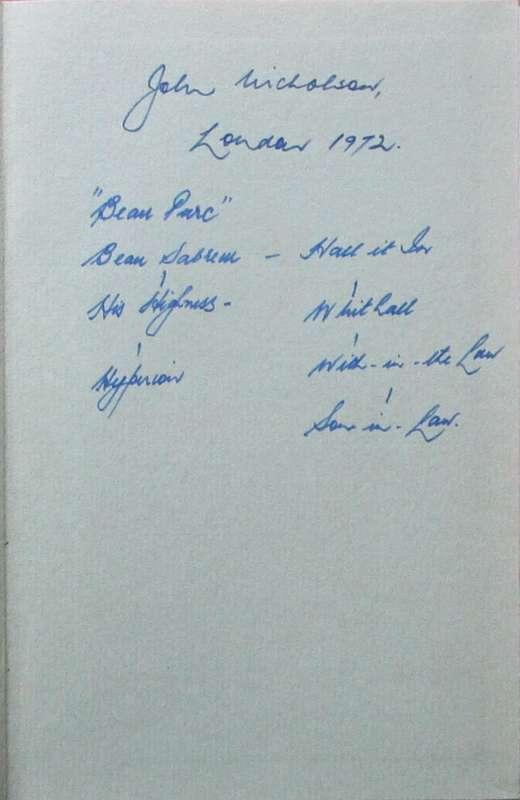 John Nicholson,
London 1972.
"Beau Parc"
Beau Sabreur - Hall it In
His Highness - Whit hall
Hyperion With-in-the Law
Son-in-Law.